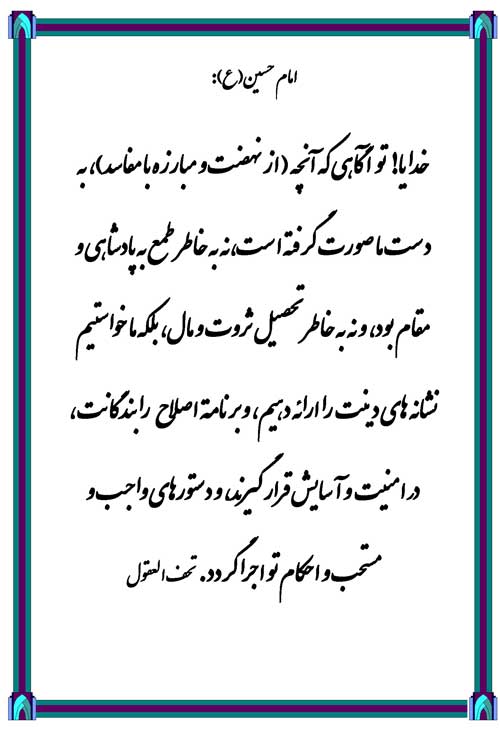 امام حسین(ع):
خدایا! تو آگاهی که آنچه (از نهضت و مبارزه با مفاسد)، به
دست ما صورت گرفته است، نه به خاطر طمع به پادشاهی و
مقام بود، و نه به خاطر تحصیل ثروت و مال، بلکه ما خواستیم
نشانه های دینت را ارائه دهیم، و برنامة اصلاح را بندگانت،
در امنیت و آسایش قرار گیرند، و دستورهای واجب و
مستحب و احکام تو اجرا گردد. تحف العقول